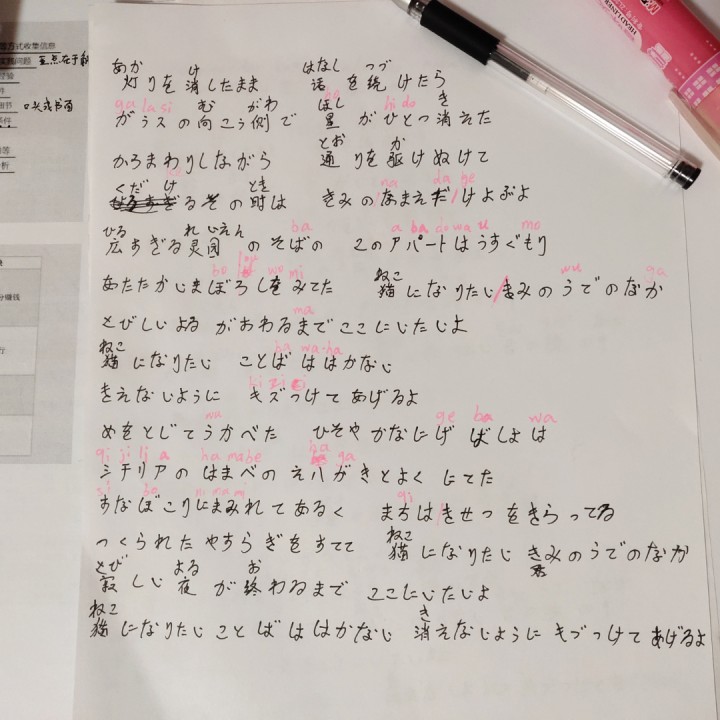 方式收集信息
实践问题 重点在于
口头或书面
条件
HEADLINER
あか け はなし つづ
灯りを消したまま 话を続けたら
ga la si む がわ ほし hi do き
ガラスの向こう側で 星がひとつ消えた
とお か
からまわりしながら 通りを駆けぬけて
くだ け とき na da ge
るその时は きみのなまえだ/けよぶよ
ひる れいえん ba a ba do wa u mo
広すぎる灵园のそばの このアパートはうすぐもり
bo lou wo mi ねこ wu ga
あたたかいまぼろしをみてた 猫になりたい/きみのうでのなか
ma
とびしいよる がおわるまでここにいたいよ
ねこ ha wa-ha
猫になりたい ことばははかない
ki zi
きえないように キズつけてあげるよ
wu ge ba wa
めをとじてうかべた ひそやかなにげばしょは
qi ji li a ha ma be ha ga
シチリアのはまべの えハがきとよくにてた
si bo ni ma mi qi
すなぼこりにまみれてあるく まちは/きせつをきらってる
ねこ
つくられたやすらぎをすてて 猫になりたい きみのうでのなか
君
とび よる お
寂しい夜が終わるまで ここにいたいよ
ねこ き
猫になりたい ことばははかない 消えないように キヅつけてあげるよ